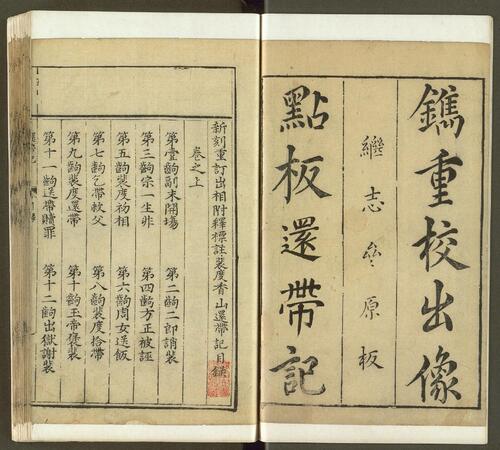 鐫重校出像
繼志齋原板
點板還帶記
新刻重訂出相附釋標註裴度香山還帶記目錄
卷之上
第壹齣副末開塲 第二齣二郎誚裴
第三齣宗一生非 第四齣方正被誣
第五齣裴度礿相 第六齣周女送飯
第七齣乞帶救父 第八齣裴度拾帶
第九齣裴度還帶 第十齣玉帝褒裴
第十一齣送帶贖罪 第十二齣出獄謝裴